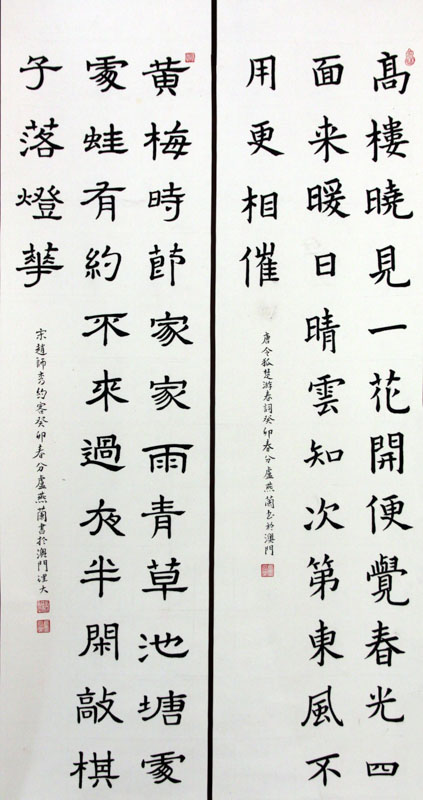 髙樓曉見一花開便覺春光四
面来暖日晴雲知次第東風不
用更相催
唐令狐楚游春詞癸卯春分盧燕蘭書於澳門
黄梅時節家家雨青草池塘處
處蛙有約不來過夜半閑敲棋
子落燈華
宋趙師秀約客癸卯春分盧燕蘭書於澳門理大